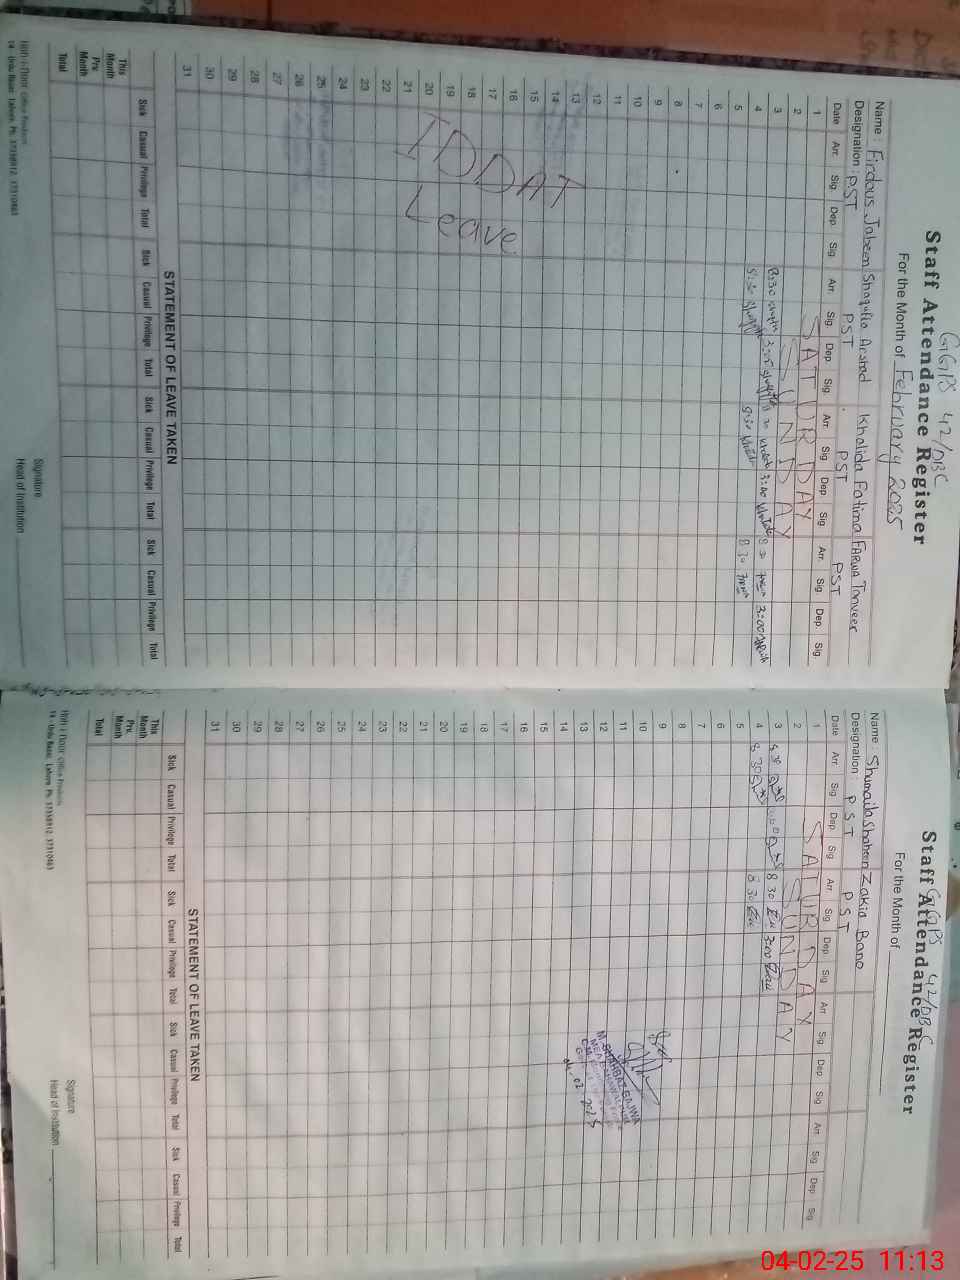 GGPS 42/DBC
Staff Attendance Register
For the Month of February 2025
Name: Firdous Jabeen Shagufta Arshad Khalida Fatima FARWA Tanveer
Designation: PST PST PST PST
Date Arr. Sig. Dep. Sig. Arr. Sig. Dep. Sig. Arr. Sig. Dep. Sig. Arr. Sig. Dep. Sig.
1 SATURDAY
2 SUNDAY
3 8:30 3:00 8 30 3:00 8 30 3:00
4 8:30 8:30 8 30
5
6
7
8
9
10
11
12
13
14
15
16
17
18
19
20
21
22
23
24
25
26
27
28
29
30
31
IDDAT
Leave
STATEMENT OF LEAVE TAKEN
Sick Casual Privilege Total Sick Casual Privilege Total Sick Casual Privilege Total Sick Casual Privilege Total
This Month
Prv. Month
Total
Signature
Head of Institution
14 - Urdu Bazar, Lahore. Ph: 37358912, 37310463
GGPS 42/DBC
Staff Attendance Register
For the Month of
Name: Shumaila Shaheen Zakia Bano
Designation: PST PST
Date Arr. Sig. Dep. Sig. Arr. Sig. Dep. Sig. Arr. Sig. Dep. Sig. Arr. Sig. Dep. Sig.
1 SATURDAY
2 SUNDAY
3 8 30 8 30 3:00
4 8 30 8 30
5
6
7
8
9
10
11
12
13
14
15
16
17
18
19
20
21
22
23
24
25
26
27
28
29
30
31
M. SHAHBAZ BAJWA
STATEMENT OF LEAVE TAKEN
Sick Casual Privilege Total Sick Casual Privilege Total Sick Casual Privilege Total Sick Casual Privilege Total
This Month
Prv. Month
Total
Signature
Head of Institution
14 - Urdu Bazar, Lahore. Ph: 37358912, 37310463
04-02-25 11:13